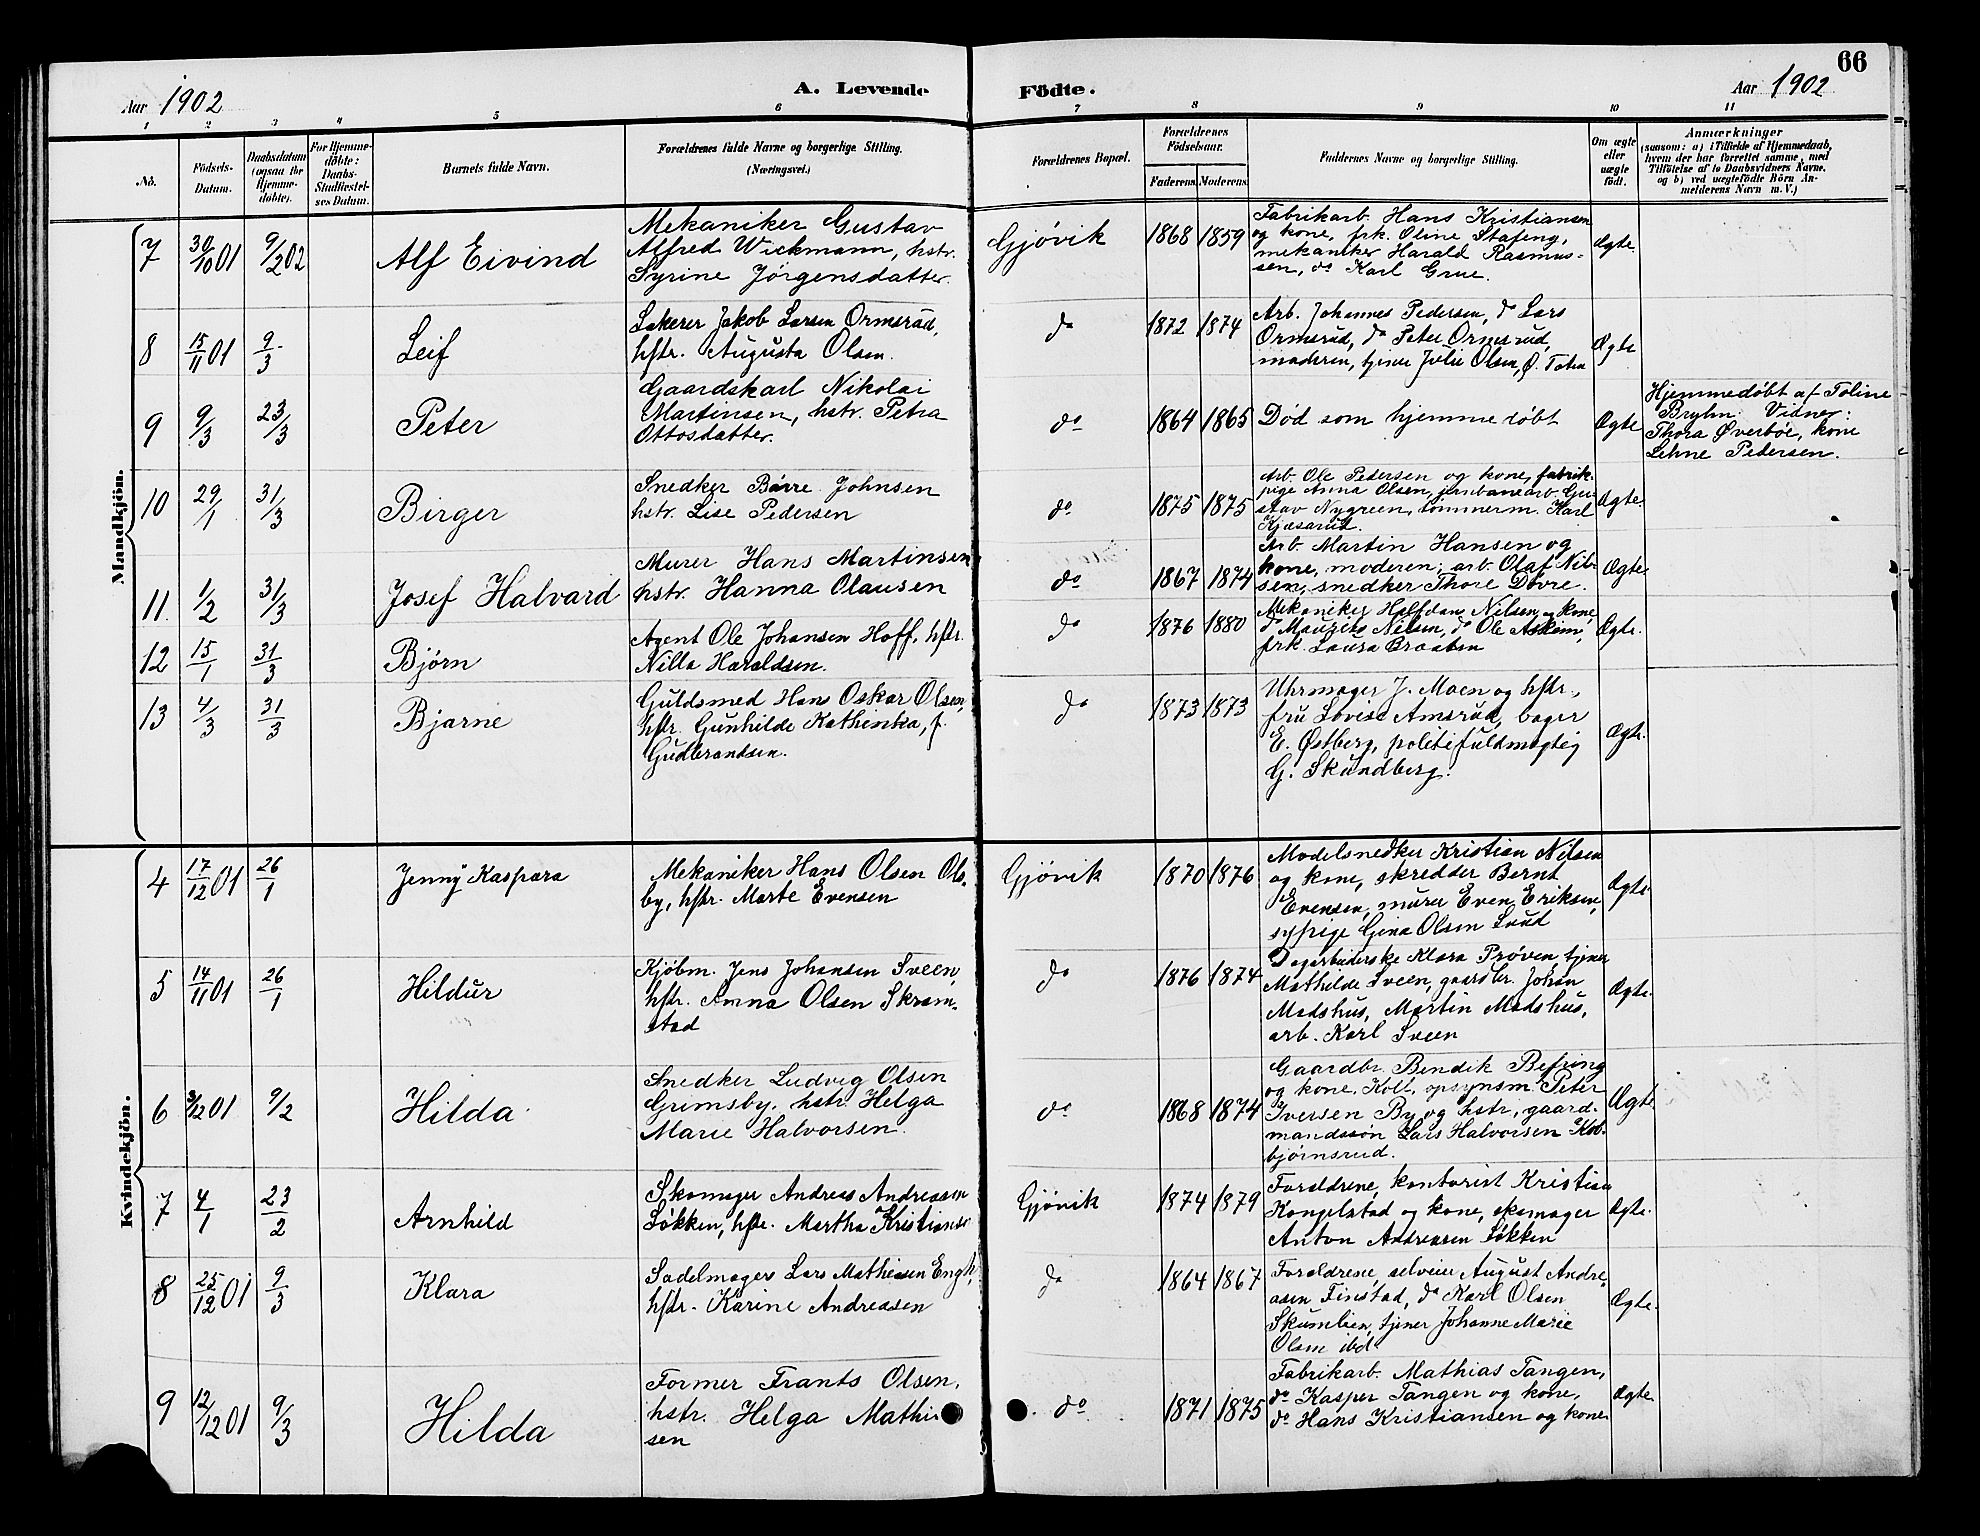 66
Aar 1902
A. Levende
Födte.
Aar 1902
1 2 3 4 5 6 7 8 9 10 11
No.
Födsels-
Datum.
Daabsdatum
(ogsaa for
Hjemme-
døbte).
For Hjemme-
døbte:
Daabs-
Stadfæstel-
ses Datum.
Barnets fulde Navn.
Forældrenes fulde Navne og borgerlige Stilling.
(Næringsvei.)
Forældrenes Bopæl.
Forældrenes
Födselsaar.
Faderens. Moderens.
Faddernes Navne og borgerlige Stilling.
Om ægte
eller
uægte
født.
Anmærkninger
(saasom: a) i Tilfælde af Hjemmedaab,
hvem der har forrettet samme, med
Tilföielse af to Daabsvidners Navne,
og b) ved uægtefødte Börn An-
melderens Navn m. V.)
Mandkjön.
7 30/10 01 9/2 02 Alf Eivind
Mekaniker Gustav
Alfred Wickmann, hstr.
Syrine Jörgensdatter.
Gjövik 1868 1859
Fabrikarb. Hans Kristiansen
og kone, frk. Oline Stafeng,
mekaniker Harald Rasmus-
sen, do Karl Grue.
Ægte.
8 15/11 01 9/3 Leif
Lakerer Jakob Larsen Ormsrud,
hstr. Augusta Olsen.
do 1872 1874
Arb. Johannes Pedersen, do Lars
Ormsrud, do Peter Ormsrud,
moderen, tjener Julie Olsen, Ø. Toten
Ægte
9 9/3 23/3 Peter
Gaardskarl Nikolai
Martinsen, hstr. Petra
Ottosdatter.
do 1864 1865
Död som hjemmedöbt
Ægte
Hjemmedöbt af Toline
Bryhn. Vidner:
Thora Øverböe, kone
Lehne Pedersen.
10 29/1 31/3 Birger
Snedker Börre Johnsen
hstr. Lise Pedersen
do 1875 1875
Arb. Ole Pedersen og kone, fabrik-
pige Anna Olsen, jernbanearb. Gu-
stav Nygreen, tömmerm. Karl
Kjæsarud.
Ægte.
11. 1/2 31/3 Josef Halvard
Murer Hans Martinsen
hstr. Hanna Olausen
do 1867 1874
Arb. Martin Hansen og
kone, moderen; arb. Olaf Nil-
sen, snedker Thore Dovre.
Ægte
12 15/1 31/3 Björn
Agent Ole Johansen Hoff, hstr.
Nilla Haraldsen.
do 1876 1880
Mekaniker Halfdan Nilsen og kone,
do Mauritz Nilsen, do Ole Askim,
frk. Laura Braaten
Ægte.
13 4/3 31/3 Bjarne
Guldsmed Hans Oskar Olsen,
hstr. Gunhilde Kathinka, f.
Gudbrandsen.
do 1873 1873
Uhrmager J. Moen og hstr.,
fru Lovise Amsrud, bager
E. Østberg, politifuldmægtig
G. Skundberg.
Ægte.
Kvindekjön.
4 17/12 01 26/1 Jenny Kaspara
Mekaniker Hans Olsen Ols-
by, hstr. Marte Evensen
Gjövik 1870 1876
Modelsnedker Kristian Nilsen
og kone, skredder Bernt
Evensen, murer Even Eriksen,
sypige Gina Olsen Lund
Ægte
5 14/11 01 26/1 Hildur
Kjöbm. Jens Johansen Sveen,
hstr. Anna Olsen Skram-
stad
do 1876 1874
Dagarbeiderske Klara Pröven, tjener
Mathilde Sveen, gaardbr. Johan
Madshus, Martin Madshus,
arb. Karl Sveen
Ægte.
6 3/12 01 9/2 Hilda
Snedker Ludvig Olsen
Grimsby, hstr. Helga
Marie Halvorsen.
do 1868 1874
Gaardbr. Bendik Befring
og kone, Kolb. opsynsm. Peter
Iversen By og hstr, gaard-
mandssön Lars Halvorsen Kob-
björnsrud.
Ægte.
7 4/1 23/2 Arnhild
Skomager Andreas Andreassen
Lökken, hstr. Martha Kristianse
Gjövik 1874 1879
Forældrene, kontorist Kristian
Kongelstad og kone, skomager
Anton Andreasen Lökken
Ægte.
8 25/12 01 9/3 Klara
Sadelmager Lars Mathiesen Engh,
hstr. Karine Andreasen
do 1864 1867
Forældrene, selveier August Andre-
asen Finstad, do Karl Olsen
Skumlien, tjener Johanne Marie
Olsen ibd.
Ægte.
9 12/12 01 9/3 Hilda
Former Frants Olsen,
hstr. Helga Mathi
sen
do 1871 1875
Fabrikarb. Mathias Tangen,
do Kasper Tangen og kone,
do Hans Kristiansen og kone
Ægte